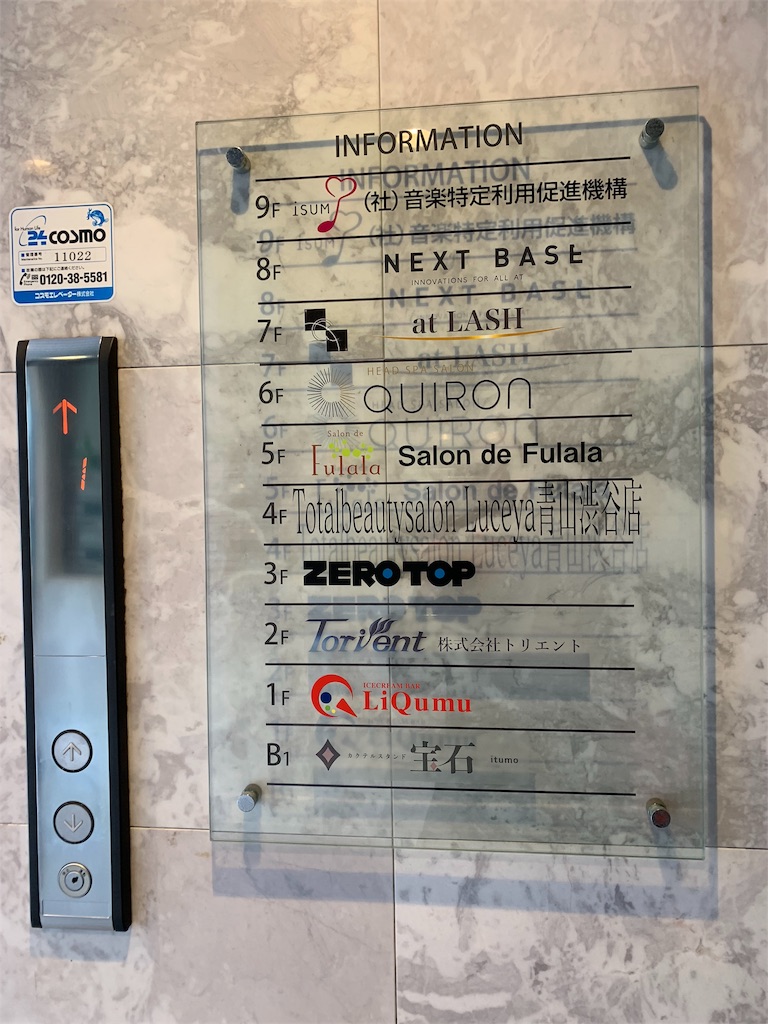 INFORMATION
9F iSUM (社)音楽特定利用促進機構
8F NEXT BASE
INNOVATIONS FOR ALL AT
7F at LASH
HEAD SPA SALON
6F QUIRON
Salon de
5F Fulala Salon de Fulala
4F Totalbeautysalon Luceya青山渋谷店
3F ZEROTOP
2F Torient 株式会社トリエント
ICECREAM BAR
1F LiQumu
B1 カクテルスタンド 宝石 itumo
for Human Life
24 COSMO
11022
0120-38-5581
コスモエレベーター株式会社
1